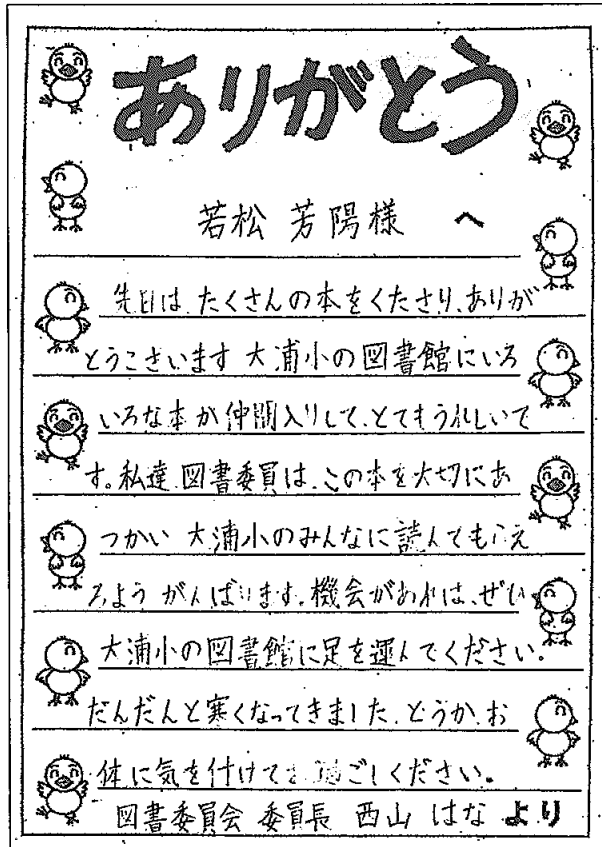 ありがとう
若松 芳陽様 へ
先日は たくさんの本をくださり、ありが
とうございます 大浦小の図書館にいろ
いろな本が仲間入りして、とてもうれしいで
す。私達 図書委員は、この本を大切にあ
つかい 大浦小のみんなに読んでもらえ
るよう がんばります。機会があれば、ぜひ
大浦小の図書館に足を運んでください.
だんだんと寒くなってきました. どうか、お
体に気を付けてお過ごしください。
図書委員会 委員長 西山 はな より